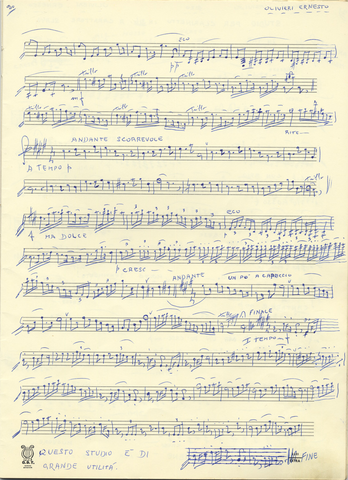 OLIVIERI ERNESTO
ECO
pp
mf
RIT
ANDANTE SCORREVOLE
A TEMPO p
ECO
f MA DOLCE
p CRESC
ANDANTE UN PO' A CAPRICCIO
FINALE
I TEMPO f
FINE
QUESTO STUDIO È DI
GRANDE UTILITÀ